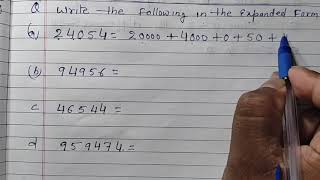 Q Write the following in the Expanded Form
(a) 24054 = 20000 + 4000 + 0 + 50 +
(b) 94956 =
c 46544 =
d 959474 =